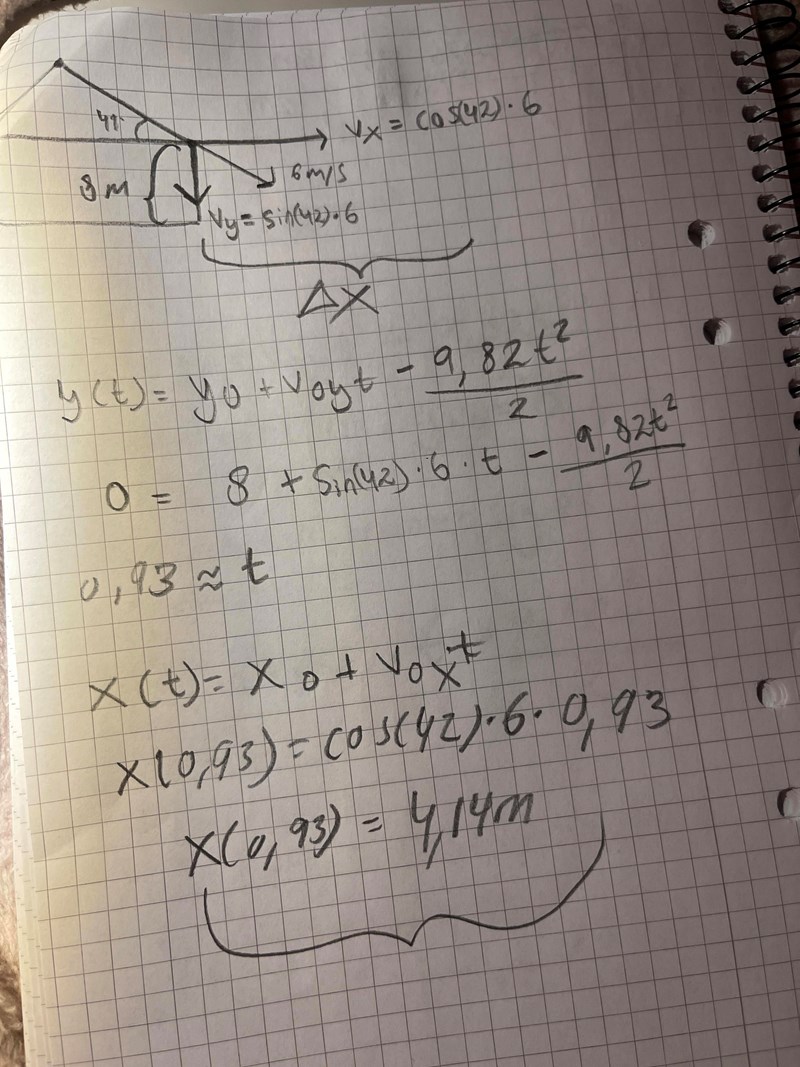 vx = cos(42)·6
6m/s
8m
vy = sin(42)·6
Δx
y(t) = y0 + v0yt - 9,82t²/2
0 = 8 + sin(42)·6·t - 9,82t²/2
0,93 ≈ t
x(t) = x0 + v0xt
x(0,93) = cos(42)·6·0,93
x(0,93) = 4,14m